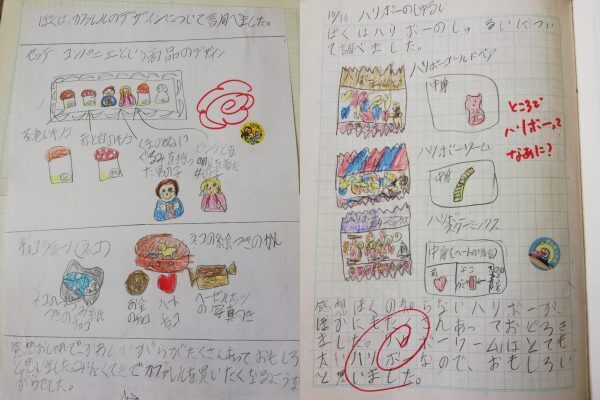 ぼくは、カファレルのデザインについて調べました。
セッテ コンパニエという商品のデザイン
茶色いキノコ
赤と白のキノコ
くるみを持っ
た 男の子
ピンクと赤
女の子
チョコ (ネコ)
ネコの絵つきのかん
ネコの
つきの
チョコ
お金
のチョコ
ハート
チョコ
ヘーゼルナッツ
の写真つき
感想おしゃれでかわいいがらがたくさんあっておもしろ
いと思いました。みんなてきでカファレルを買いたくなるような
がらでした。
10/10 ハリボーのしゅるい
ぼくはハリボーのしゅるいについ
て調べました。
ハリボーゴールドベア
中身
ところで
ハリボーって
なあに?
ハリボーワーム
中身
ハリボー
スターミックス
中身(ハートが有名)
よこ
感想ぼくの知らないハリボーが
ほかにもたくさんあっておどろき
ました。ハリボーワームはとても
太いハリボーなので、おもしろい
と思いました。